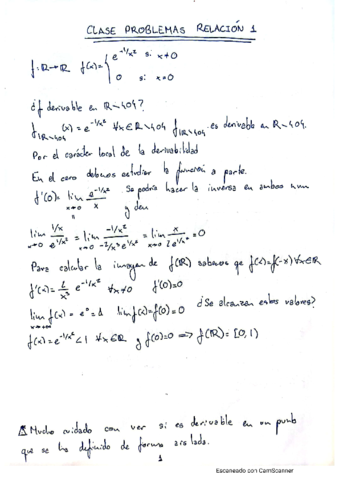 CLASE PROBLEMAS RELACIÓN 1
f: ℝ→ℝ f(x)= { e^{-1/x²} si x≠0
0 si x=0
¿f derivable en ℝ∖{0}?
f|ℝ∖{0} (x) = e^{-1/x²} ∀x∈ℝ∖{0} f|ℝ∖{0} es derivable en ℝ∖{0}.
Por el carácter local de la derivabilidad
En el cero debemos estudiar la función a parte.
f'(0)= lim_{x→0} e^{-1/x²}/x Se podría hacer la inversa en ambos num y den
lim_{x→0} (1/x)/e^{1/x²} = lim_{x→0} (-1/x²)/(-2/x³ e^{1/x²}) = lim_{x→0} x/(2e^{1/x²}) = 0
Para calcular la imagen de f(ℝ) sabemos qe f(x)=f(-x) ∀x∈ℝ
f'(x)= 2/x³ e^{-1/x²} ∀x≠0 f'(0)=0
lim_{x→+∞} f(x) = e⁰ = 1 lim f(x)=f(0)=0 ¿Se alcanzan estos valores?
f(x)=e^{-1/x²}<1 ∀x∈ℝ y f(0)=0 ⟹ f(ℝ)=[0,1)
⚠ Mucho cuidado con ver si es derivable en un punto
que se ha definido de forma aislada.
1
Escaneado con CamScanner